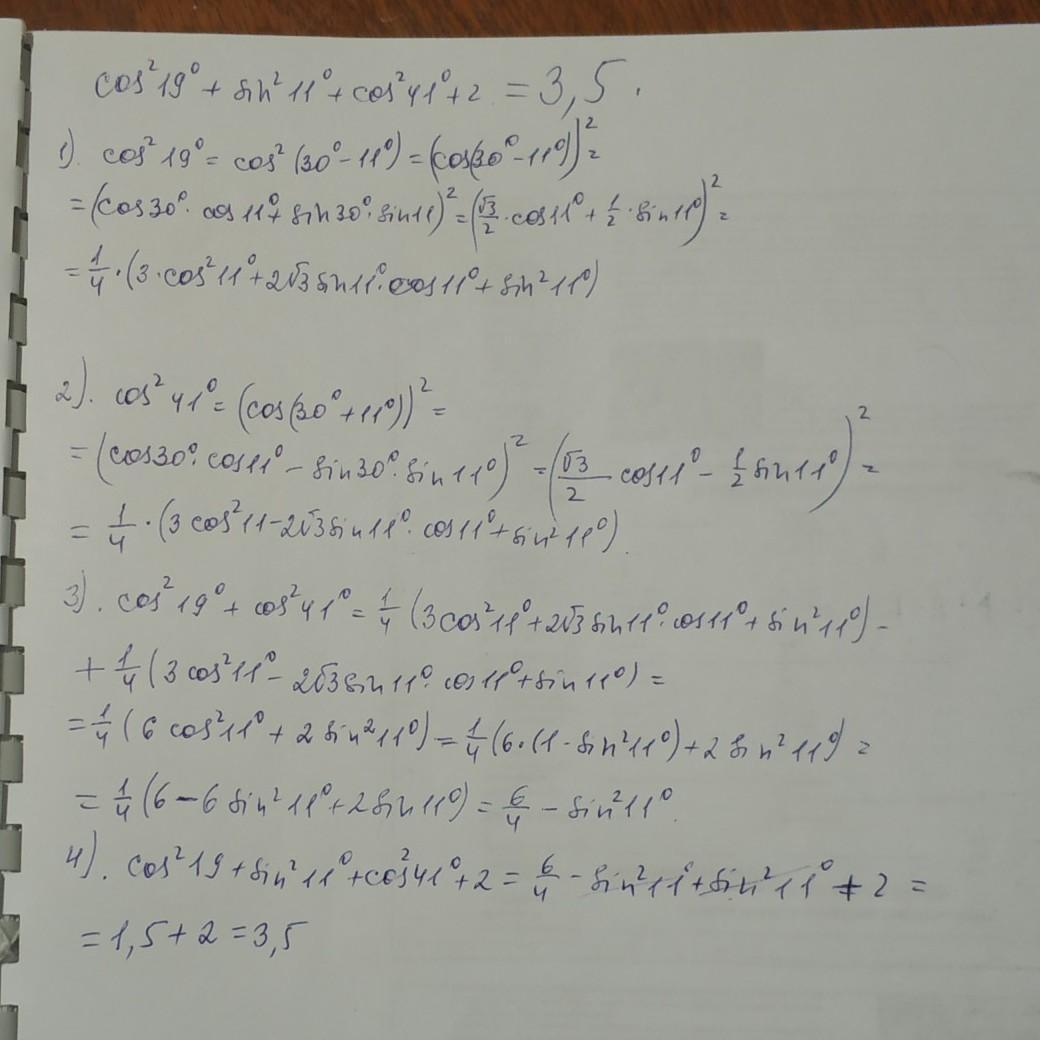 cos²19° + sin²11° + cos²41° + 2 = 3,5.
1). cos²19° = cos²(30° - 11°) = (cos(30° - 11°))² =
= (cos30° · cos11° + sin30° · sin11)² = (√3/2 · cos11° + 1/2 · sin11°)² =
= 1/4 · (3 · cos²11° + 2√3 sin11° · cos11° + sin²11°)
2). cos²41° = (cos(30° + 11°))² =
= (cos30° · cos11° - sin30° · sin11°)² = (√3/2 cos11° - 1/2 sin11°)² =
= 1/4 · (3cos²11 - 2√3 sin11° · cos11° + sin²11°).
3). cos²19° + cos²41° = 1/4 (3cos²11° + 2√3 sin11° · cos11° + sin²11°) -
+ 1/4 (3cos²11° - 2√3 sin11° · cos11° + sin11°) =
= 1/4 (6cos²11° + 2sin²11°) = 1/4 (6 · (1 - sin²11°) + 2sin²11°) =
= 1/4 (6 - 6sin²11° + 2sin11°) = 6/4 - sin²11°.
4). cos²19 + sin²11° + cos²41° + 2 = 6/4 - sin²11° + sin²11° + 2 =
= 1,5 + 2 = 3,5